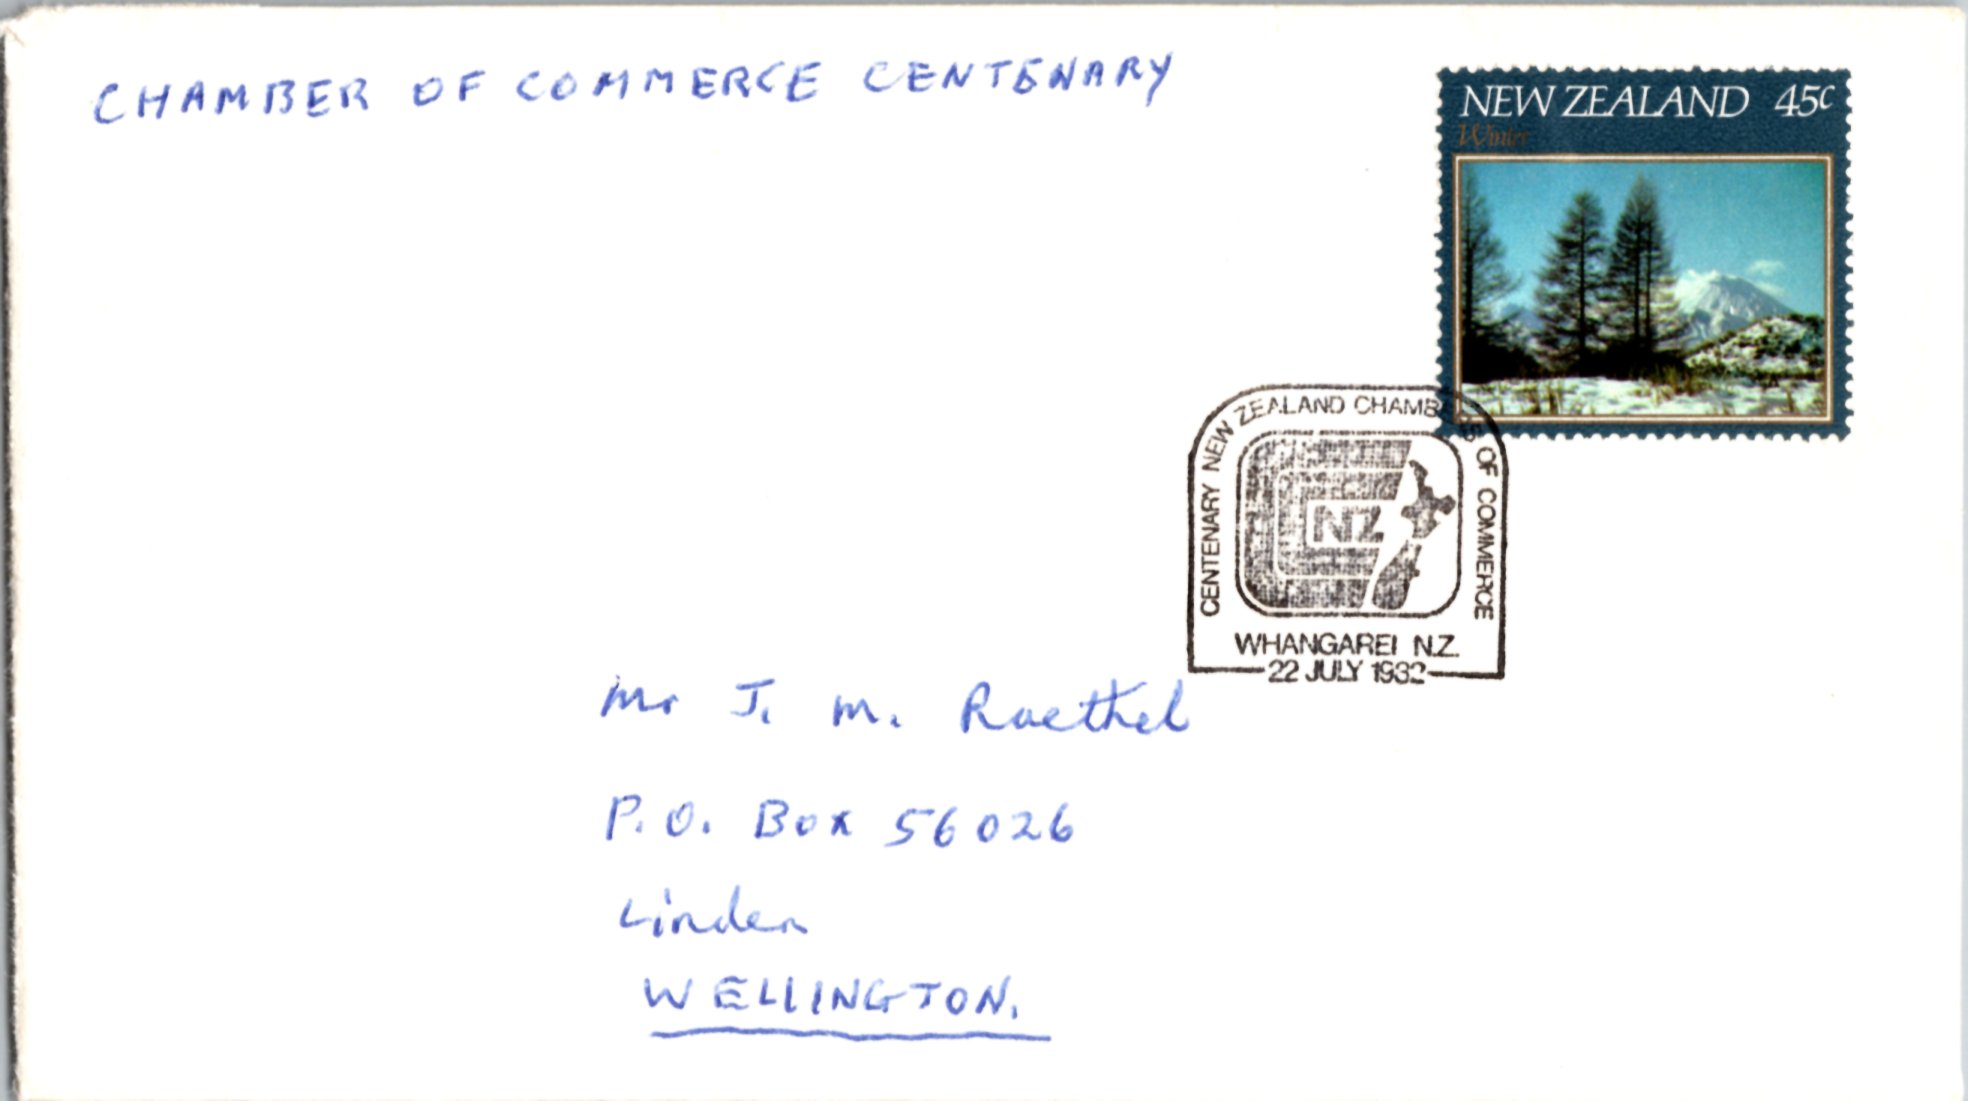 CHAMBER OF COMMERCE CENTENARY
NEW ZEALAND 45c
Winter
CENTENARY NEW ZEALAND CHAMBERS OF COMMERCE
NZ
WHANGAREI N.Z.
22 JULY 1982
Mr J. M. Raethel
P.O. Box 56026
Linden
WELLINGTON.